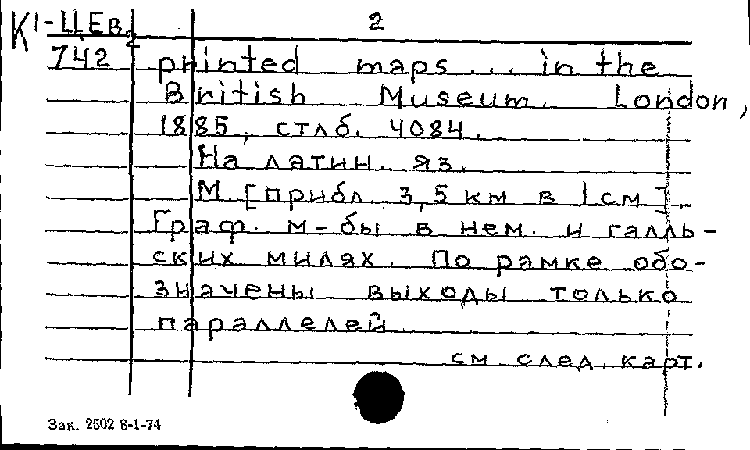 К1-ЦЕв. 2
742 printed maps... in the
British Museum. London,
1885, стлб. 4084.
На латин. яз.
М [прибл. 3,5 км в 1 см].
Граф. м-бы в нем. и галль-
ских милях. По рамке обо-
значены выходы только
параллелей
см. след. карт.
Зак. 2502 6-1-74